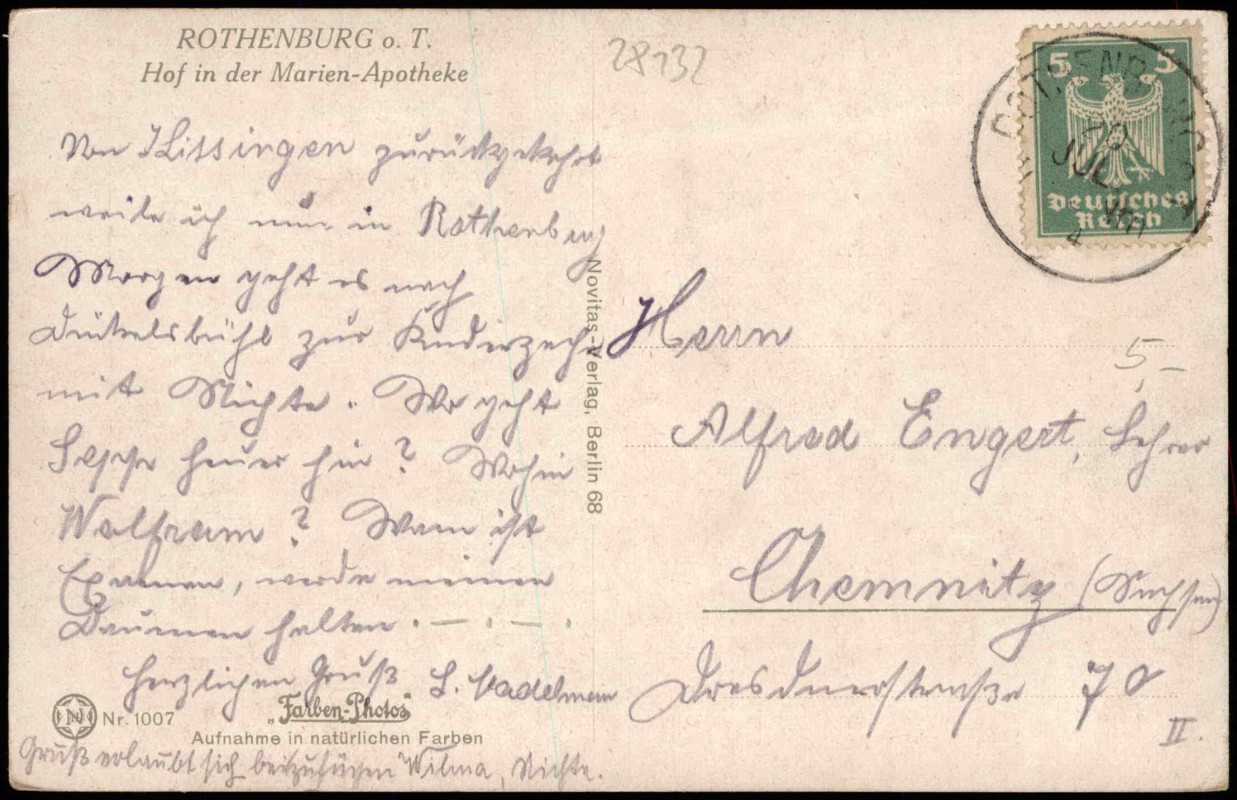 ROTHENBURG o. T.
Hof in der Marien-Apotheke
28132
Von Kissingen zurückgekehrt
weile ich nun in Rothenburg
Morgen geht es nach
Dinkelsbühl zur Kinderzeche
mit Nichte. Wo geht
Seppe heuer hin? Wohin
Wolfram? Wann ist
Examen, werde meinen
Daumen halten. — . — .
Herzlichen Gruß L. Nadelmann
Gruß erlaubt sich beizufügen Wilma, Nichte.
Nr. 1007
„Farben-Photos"
Aufnahme in natürlichen Farben
Novitas-Verlag, Berlin 68
5 5
Deutsches
Reich
20
JUL
5,–
Herrn
Alfred Engert, Lehrer
Chemnitz (Sachsen)
Dresdnerstraße 70
II.